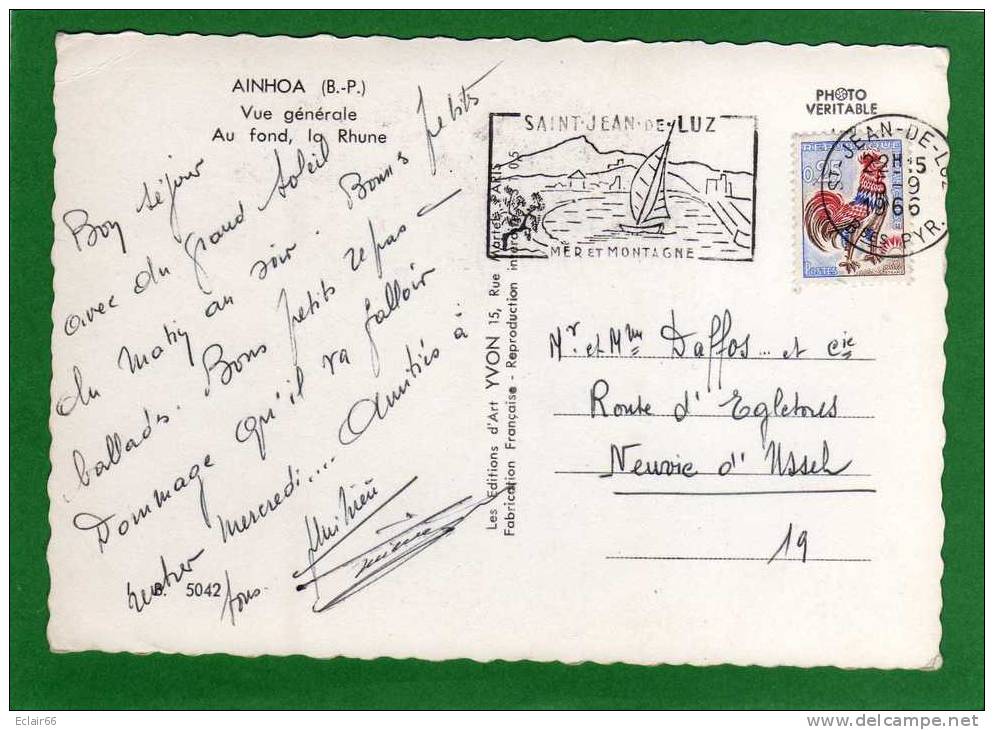 AINHOA (B.-P.)
Vue générale
Au fond, la Rhune
Bon séjour
avec du grand soleil
du matin au soir. Bonnes petits
ballades. Bons petits repas —
Dommage qu'il va falloir
rentrer mercredi... Amitiés à
tous.
B. 5042
Les Editions d'Art YVON 15, Rue Martel, PARIS
Fabrication Française - Reproduction interdite
SAINT-JEAN-DE-LUZ
MER ET MONTAGNE
PHOTO
VERITABLE
ST-JEAN-DE-LUZ
22H15
9
1966
BSES PYR.
0,25
POSTES
Mr et Mme Daffos... et Cie
Route d'Egletons
Neuvic d'Ussel
19
Eclair66
www.delcampe.net